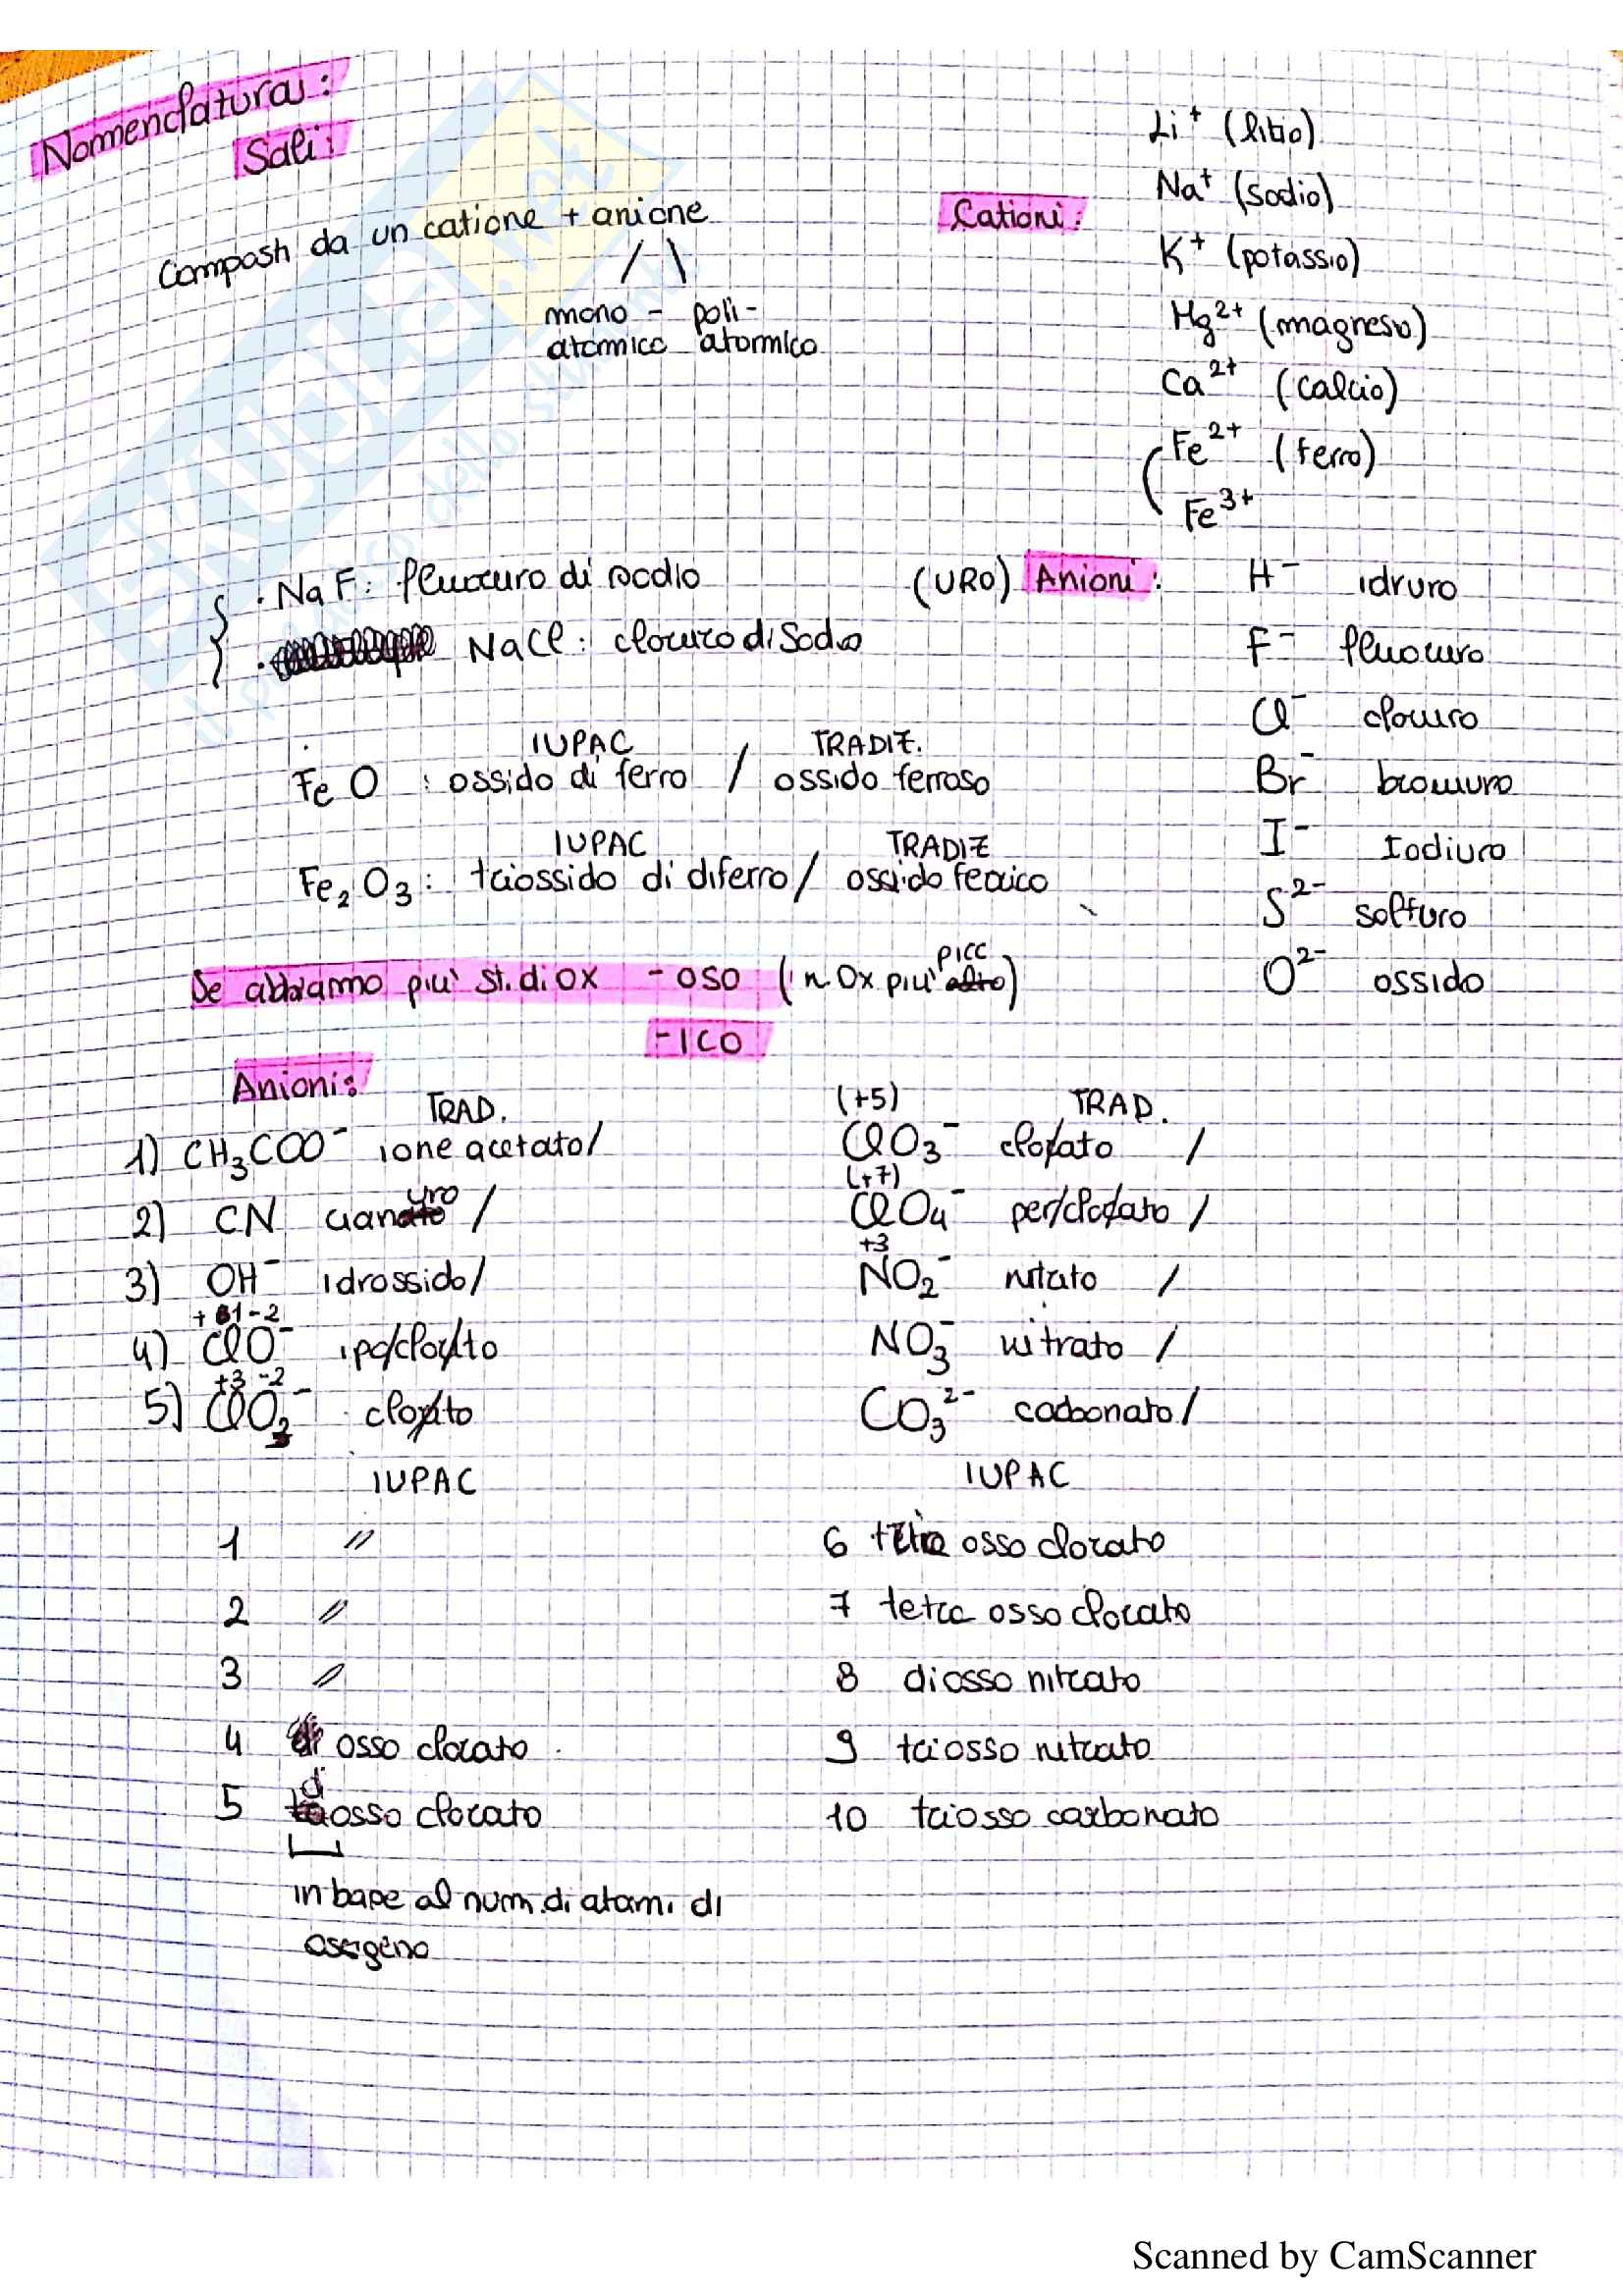 Nomenclatura:
Sali:
Composti da un catione + anione
mono - poli-
atomico atomico
Cationi:
Li⁺ (litio)
Na⁺ (sodio)
K⁺ (potassio)
Mg²⁺ (magnesio)
Ca²⁺ (calcio)
Fe²⁺ (ferro)
Fe³⁺
· NaF: fluoruro di sodio
· NaCl: cloruro di Sodio
(URO) Anioni:
H⁻ idruro
F⁻ fluoruro
Cl⁻ cloruro
Br⁻ bromuro
I⁻ Iodiuro
S²⁻ solfuro
O²⁻ ossido
IUPAC TRADIZ.
FeO : ossido di ferro / ossido ferroso
IUPAC TRADIZ
Fe₂O₃: triossido di diferro / ossido ferrico
Se abbiamo più st. di ox -oso (n Ox più alto picc)
-ICO
Anioni:
TRAD.
1) CH₃COO⁻ ione acetato/
2) CN cianuro /
3) OH⁻ idrossido/
+1 -2
4) ClO⁻ ipo/clor/ito
+3 -2
5) ClO₂⁻ clor/ito
(+5) TRAD.
ClO₃⁻ clor/ato /
(+7)
ClO₄⁻ per/clor/ato /
+3
NO₂⁻ nitrato /
NO₃⁻ nitrato /
CO₃²⁻ carbonato/
IUPAC
1 //
2 //
3 //
4 osso clorato
5 diosso clorato
in base al num. di atomi di
ossigeno
IUPAC
6 osso clorato
7 tetra osso clorato
8 diosso nitrato
9 triosso nitrato
10 triosso carbonato
SKUOLA.net
il paradiso dello studente
Scanned by CamScanner